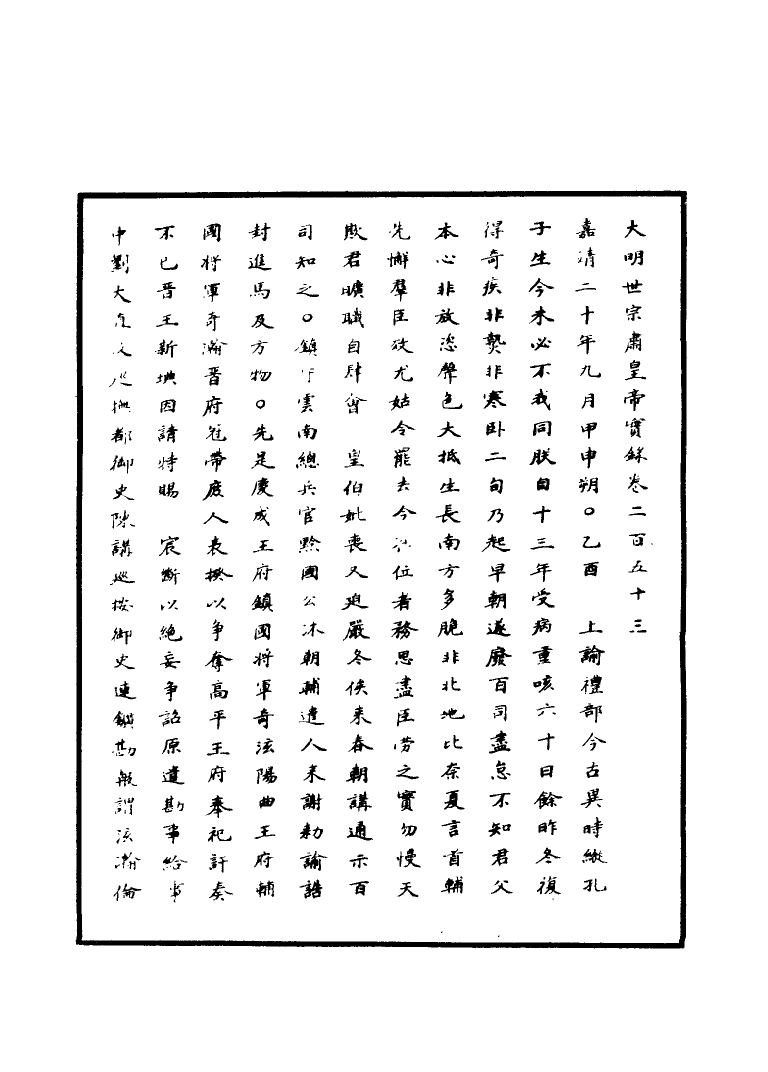 大明世宗肅皇帝實錄卷二百五十三
嘉靖二十年九月甲申朔○乙酉　上諭禮部今古異時縱孔
子生今未必不我同朕自十三年受病重咳六十日餘昨冬復
得奇疾非熱非寒卧二旬乃起早朝遂廢百司盡怠不知君父
本心非放恣聲色大抵生長南方多脆非北地比奈夏言首輔
先懈羣臣效尤姑令罷去今在位者務思盡臣勞之實勿慢天
欺君曠職自肆會　皇伯妣喪又迫嚴冬俟來春朝講通示百
司知之○鎮守雲南總兵官黔國公沐朝輔遣人來謝勅諭誥
封進馬及方物○先是慶成王府鎮國將軍奇浤陽曲王府輔
國將軍奇瀚晉府冠帶庶人表揆以爭奪高平王府奉祀訐奏
不已晉王新㙉因請特賜　宸斷以絕妄爭詔原遣勘事給事
中劉大直及巡撫都御史陳講巡按御史連鑛勘報謂浤瀚倫